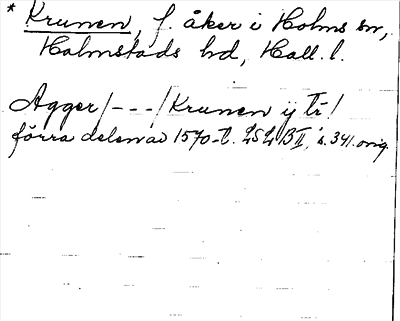 * Krunen, f. åker i Holms sn,
Halmstads hd, Hall. l.
Agger/---/Krunen ij tr!
förra delen av 1570-t. LSLB II, s. 341. orig.